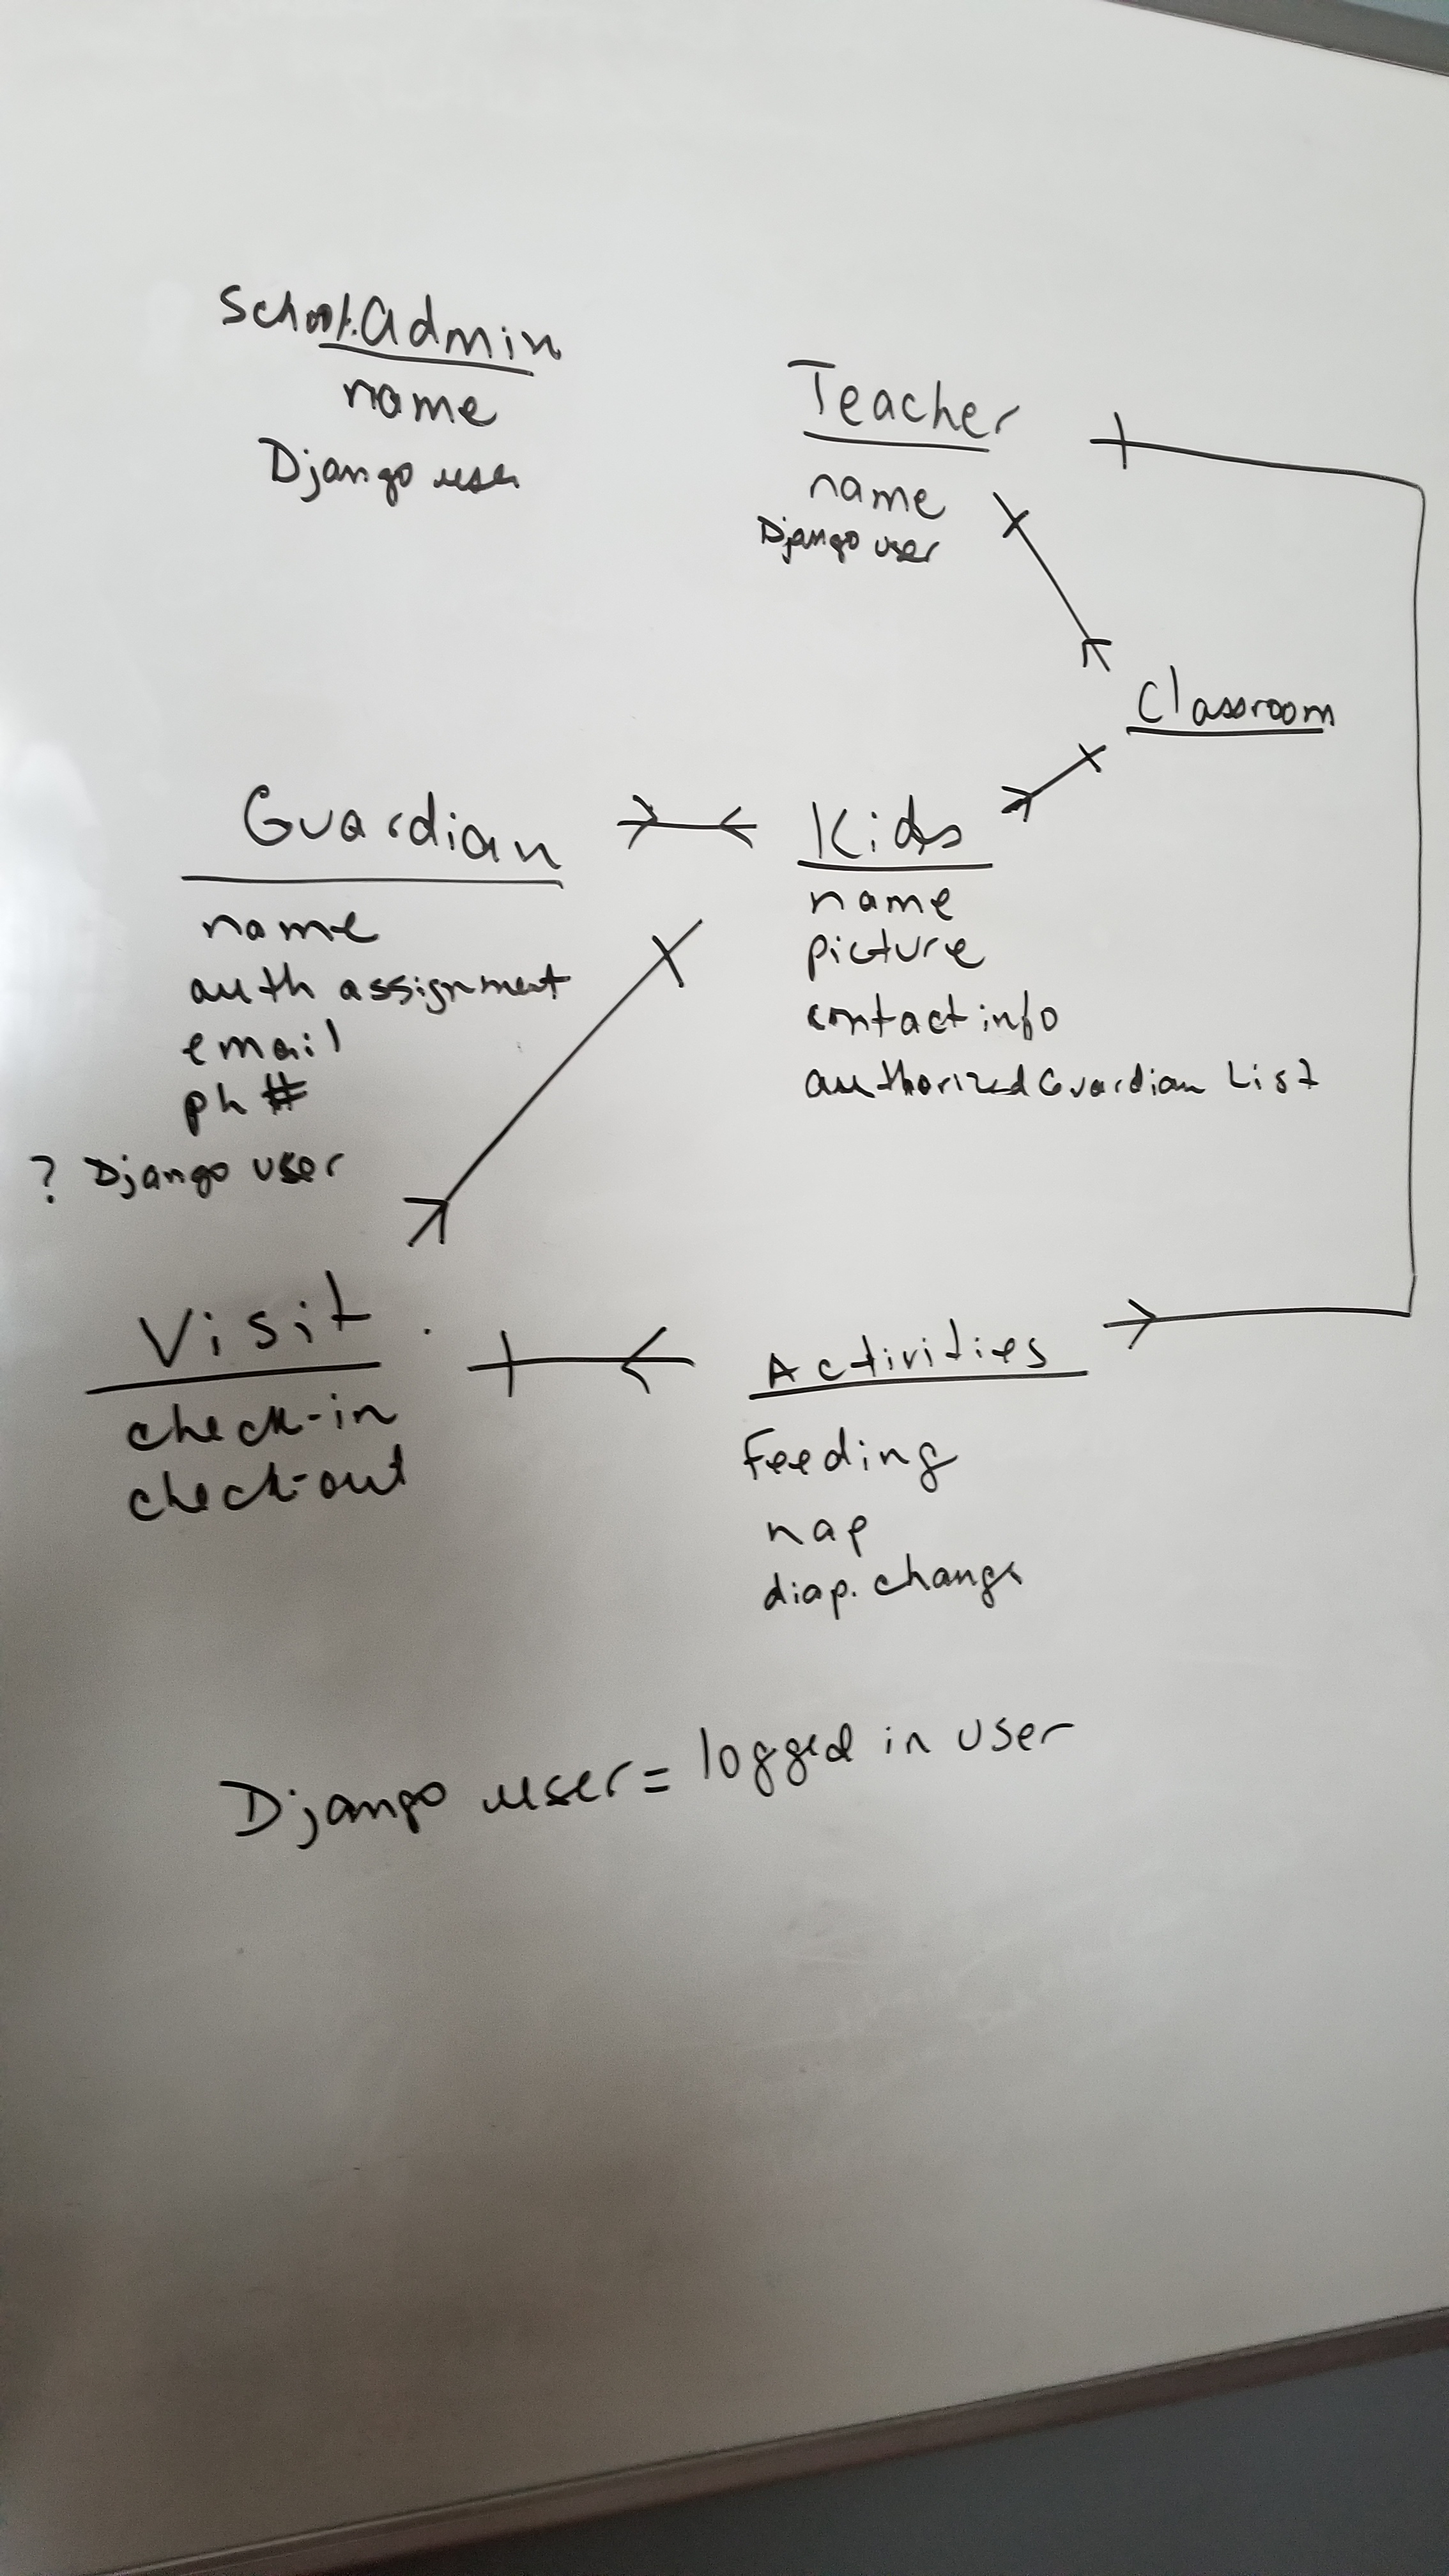 School.Admin
name
Django user
Teacher
name
Django user
Classroom
Guardian
name
auth assignment
email
ph #
? Django user
Kids
name
picture
contact info
authorized Guardian List
Visit
check-in
check-out
Activities
Feeding
nap
diap. change
Django user = logged in user